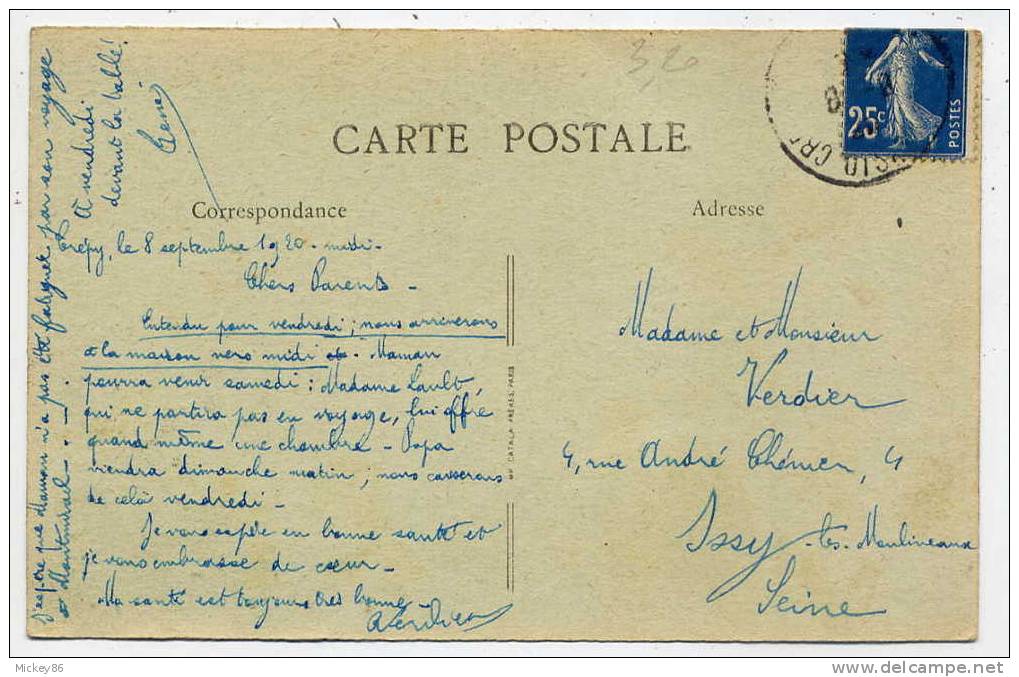 CARTE POSTALE
Correspondance
Crépy, le 8 septembre 1920 - midi -
Chers Parents -
Entendu pour vendredi ; nous arriverons
à la maison vers midi - Maman
pourra venir samedi : Madame Lault,
qui ne partira pas en voyage, lui offre
quand même une chambre - Papa
viendra dimanche matin ; nous causerons
de cela vendredi -
Je vous espère en bonne santé et
je vous embrasse de cœur -
Ma santé est toujours très bonne -
RVerdier
J'espère que Maman n'a pas été fatiguée par son voyage
à Montmirail . -
à vendredi
devant la table !
René
3,20
Adresse
Madame et Monsieur
Verdier
4, rue André Chénier, 4
Issy - les - Moulineaux
Seine
25c
POSTES
IMP. CATALA FRÈRES, PARIS
Mickey86
delcampe.net